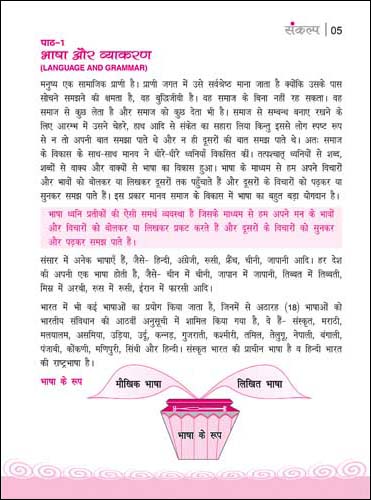 संकल्प | 05
पाठ-1
भाषा और व्याकरण
(LANGUAGE AND GRAMMAR)
मनुष्य एक सामाजिक प्राणी है। प्राणी जगत में उसे सर्वश्रेष्ठ माना जाता है क्योंकि उसके पास
सोचने समझने की क्षमता है, वह बुद्धिजीवी है। वह समाज के बिना नहीं रह सकता। वह
समाज से कुछ लेता है और समाज को कुछ देता भी है। समाज से सम्बन्ध बनाए रखने के
लिए आरम्भ में उसने चेहरे, हाथ आदि से संकेत का सहारा लिया किन्तु इससे लोग स्पष्ट रूप
से न तो अपनी बात समझा पाते थे और न ही दूसरों की बात समझ पाते थे। अतः समाज
के विकास के साथ-साथ मानव ने धीरे-धीरे ध्वनियाँ विकसित कीं। तत्पश्चात् ध्वनियों से शब्द,
शब्दों से वाक्य और वाक्यों से भाषा का विकास हुआ। भाषा के माध्यम से हम अपने विचारों
और भावों को बोलकर या लिखकर दूसरों तक पहुँचाते हैं और दूसरों के विचारों को पढ़कर या
सुनकर समझ पाते हैं। इस प्रकार मानव समाज के विकास में भाषा का बहुत बड़ा योगदान है।
भाषा ध्वनि प्रतीकों की ऐसी समर्थ व्यवस्था है जिसके माध्यम से हम अपने मन के भावों
और विचारों को बोलकर या लिखकर प्रकट करते हैं और दूसरों के विचारों को सुनकर
और पढ़कर समझ पाते हैं।
संसार में अनेक भाषाएँ हैं, जैसे- हिन्दी, अंग्रेजी, रूसी, फ्रैंच, चीनी, जापानी आदि। हर देश
की अपनी एक भाषा होती है, जैसे- चीन में चीनी, जापान में जापानी, तिब्बत में तिब्बती,
मिस्र में अरबी, रूस में रूसी, ईरान में फारसी आदि।
भारत में भी कई भाषाओं का प्रयोग किया जाता है, जिनमें से अठारह (18) भाषाओं को
भारतीय संविधान की आठवीं अनुसूची में शामिल किया गया है, वे हैं- संस्कृत, मराठी,
मलयालम, असमिया, उड़िया, उर्दू, कन्नड़, गुजराती, कश्मीरी, तमिल, तेलुगू, नेपाली, बंगाली,
पंजाबी, कोंकणी, मणिपुरी, सिंधी और हिन्दी। संस्कृत भारत की प्राचीन भाषा है व हिन्दी भारत
की राष्ट्रभाषा है।
भाषा के रूप
मौखिक भाषा लिखित भाषा
भाषा के रूप